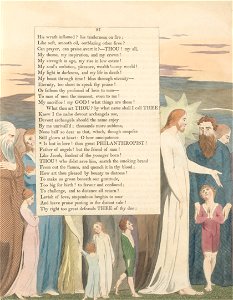 His wrath inflamed? his tenderness on fire;
Like soft, smooth oil, outblazing other fires?
Can prayer, can praise avert it?—THOU! my all,
My theme, my inspiration, and my crown!
My strength in age, my rise in low estate!
My soul's ambition, pleasure, wealth!—my world!
My light in darkness, and my life in death!
My boast through time! bliss through eternity!—
Eternity, too short to speak thy praise!
Or fathom thy profound of love to man—
To man of men the meanest, even to me!
My sacrifice! my GOD! what things are these!
What then art THOU? by what name shall I call THEE?
Knew I the name devout archangels use,
Devout archangels should the name enjoy
By me unrivall'd; thousands more sublime,
None half so dear as that, which, though unspoke
Still glows at heart: O how omnipotence
* Is lost in love! thou great PHILANTHROPIST!
Father of angels! but the friend of man!
Like Jacob, fondest of the younger born!
THOU! who didst save him, snatch the smoking brand
From out the flames, and quench it in thy blood!
How art thou pleased by bounty to distress!
To make us groan beneath our gratitude,
Too big for birth! to favour and confound;
To challenge, and to distance all return!
Lavish of love, stupendous heights to soar
And leave praise panting in the distant vale!
Thy right too great defrauds THEE of thy due;